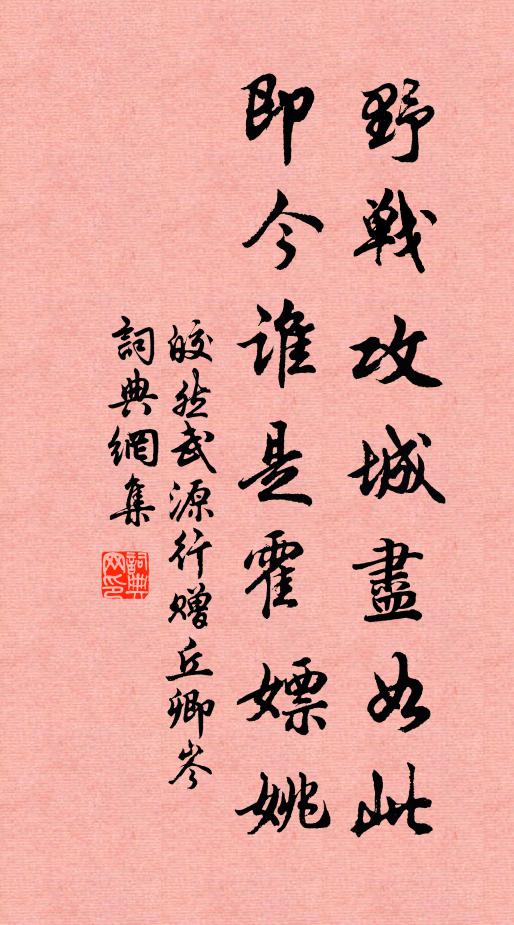 野戰攻城盡如此
即今誰是霍嫖姚
皎然武源行贈丘卿岑
詞典網集
詞典網印